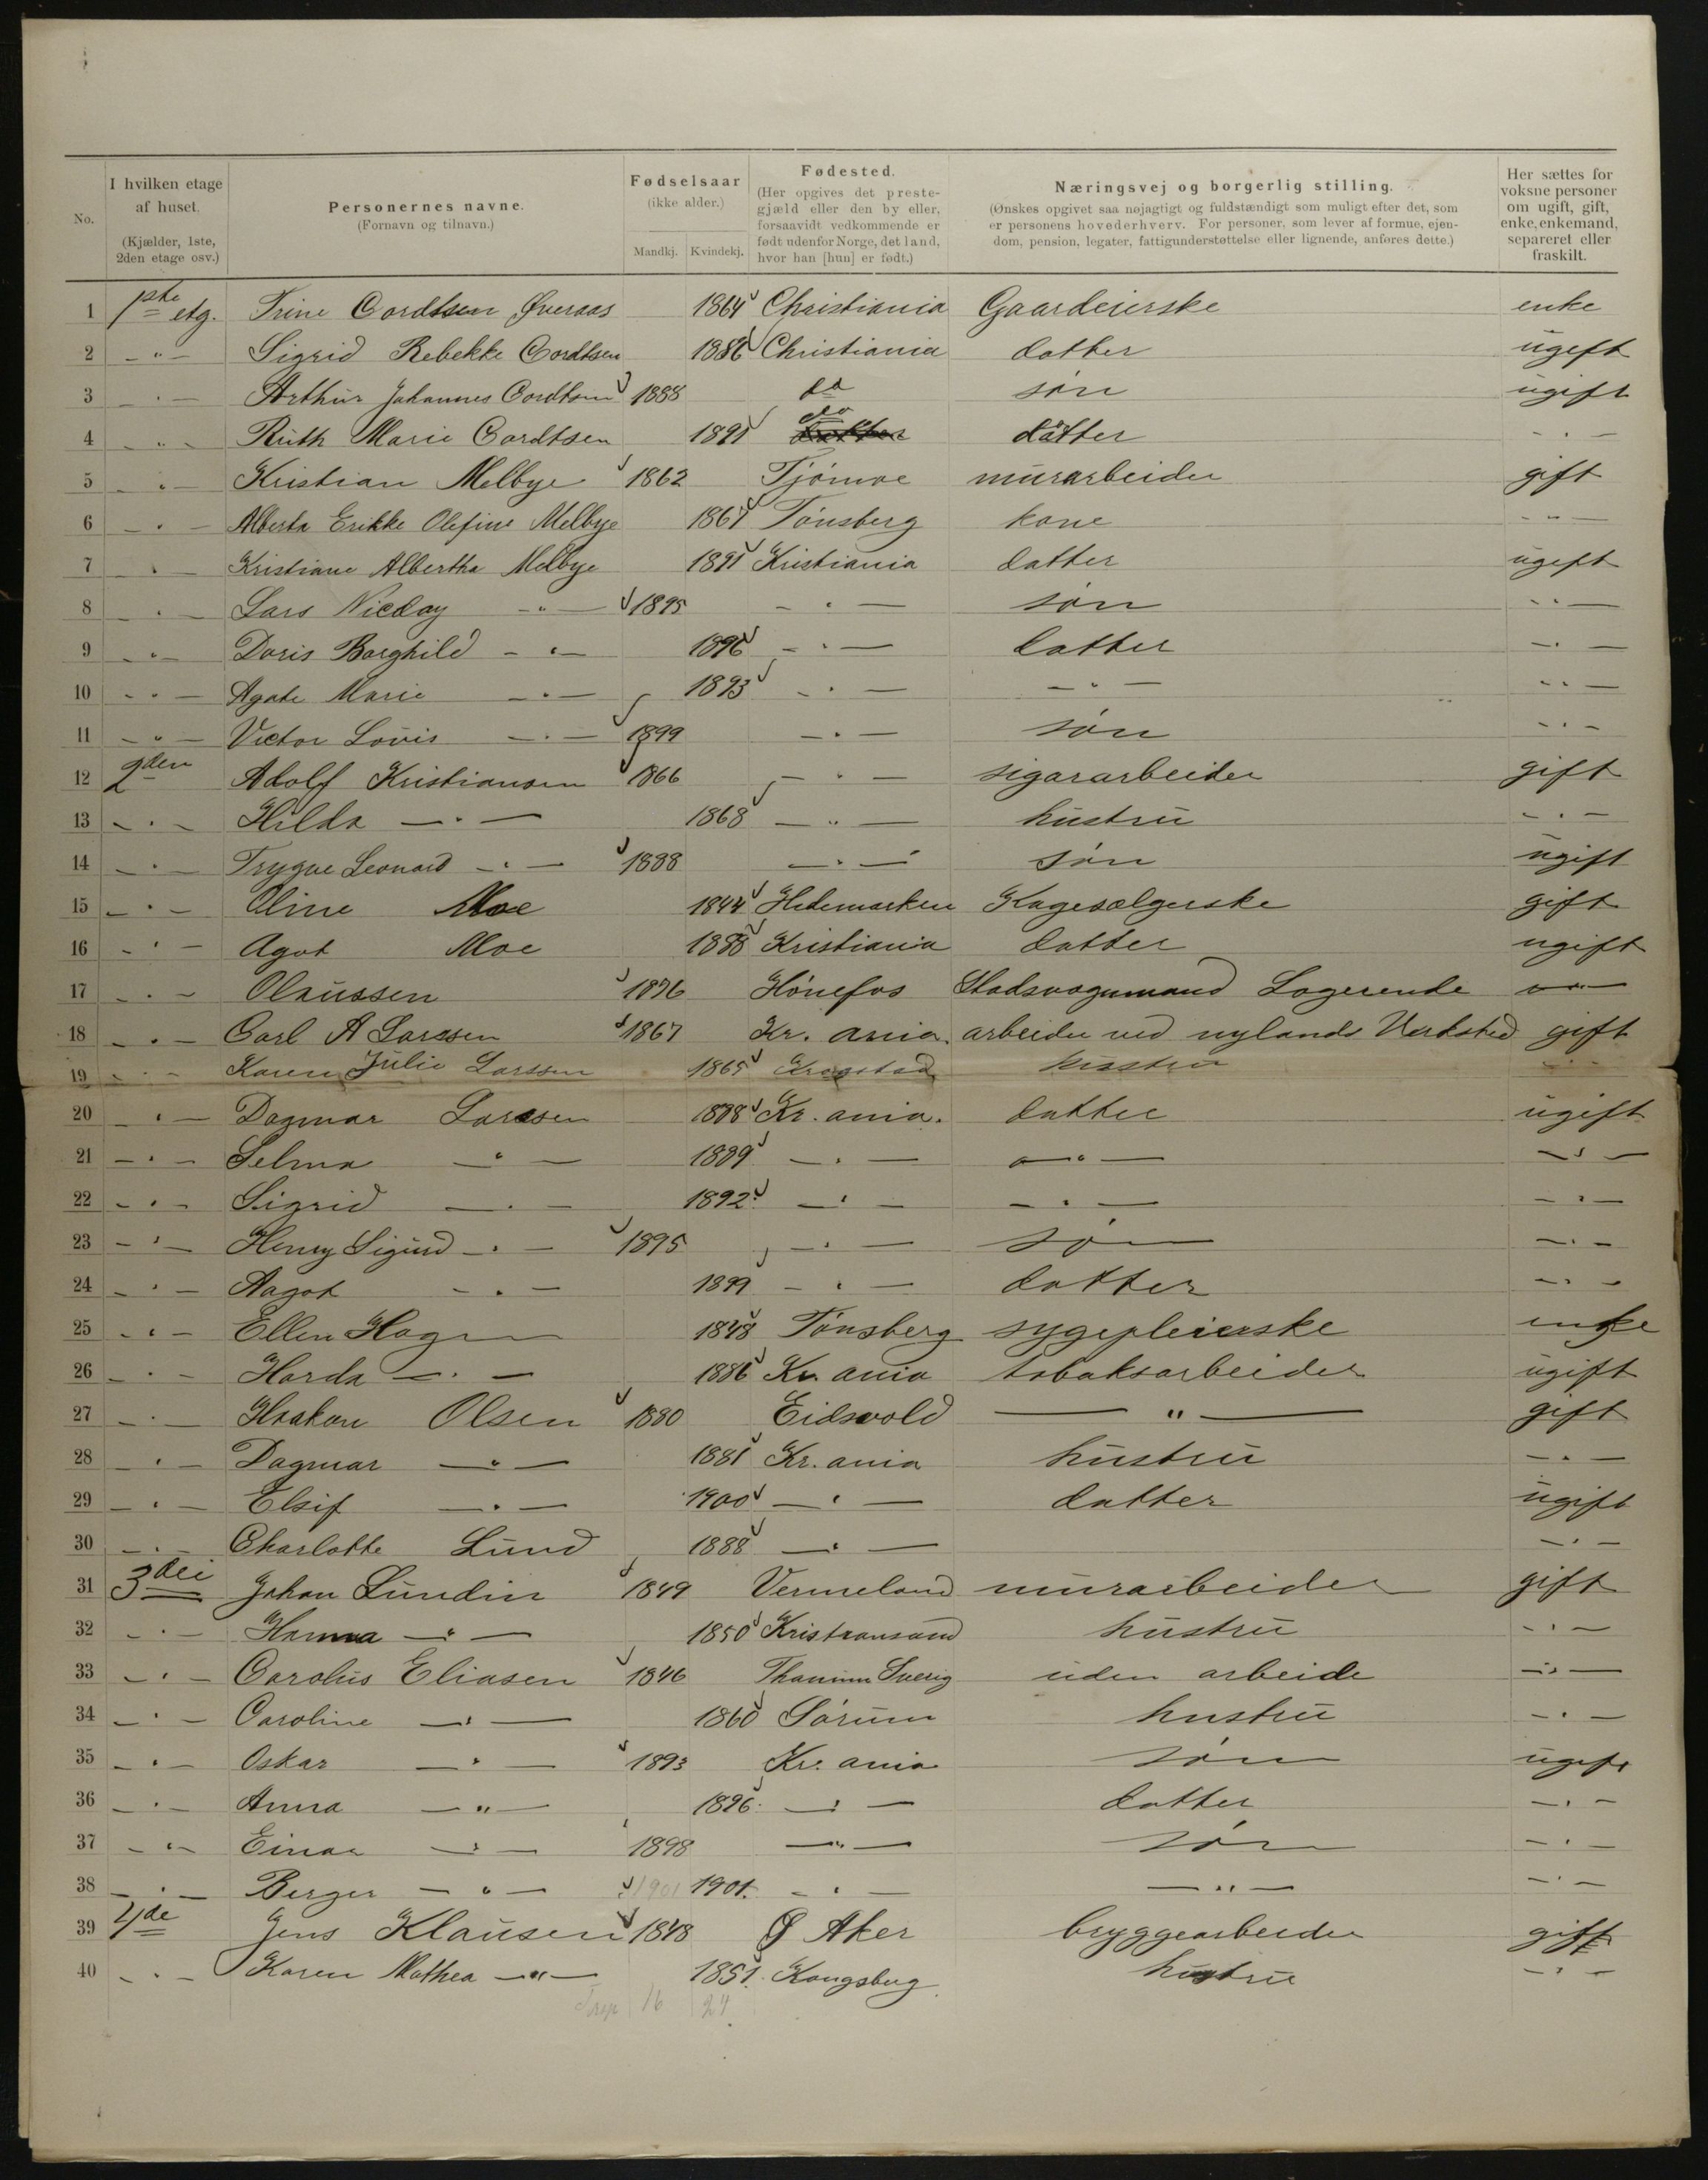 No. I hvilken etage af huset. (Kjælder, 1ste, 2den etage osv.) Personernes navne. (Fornavn og tilnavn.) Fødselsaar (ikke alder.) Mandkj. Kvindekj. Fødested. (Her opgives det prestegjæld eller den by eller, forsaavidt vedkommende er født udenfor Norge, det land, hvor han [hun] er født.) Næringsvej og borgerlig stilling. (Ønskes opgivet saa nøjagtigt og fuldstændigt som muligt efter det, som er personens hovederhverv. For personer, som lever af formue, ejendom, pension, legater, fattigunderstøttelse eller lignende, anføres dette.) Her sættes for voksne personer om ugift, gift, enke, enkemand, separeret eller fraskilt.
1 1ste etg. Trine Cordtsen Øveraas 1864 Christiania Gaardeierske enke
2 -"- Sigrid Rebekke Cordtsen 1886 Christiania datter ugift
3 -"- Arthur Johannes Cordtsen 1888 do søn ugift
4 -"- Ruth Marie Cordtsen 1891 do datter -"-
5 -"- Kristian Melbye 1862 Tjømoe murarbeider gift
6 -"- Alberta Erikke Olefine Melbye 1867 Tønsberg kone -"-
7 -"- Kristiane Albertha Melbye 1891 Kristiania datter ugift
8 -"- Lars Nicolay -"- 1895 -"- søn -"-
9 -"- Doris Borghild -"- 1896 -"- datter -"-
10 -"- Agate Marie -"- 1893 -"- -"- -"-
11 -"- Victor Louis -"- 1899 -"- søn -"-
12 2den Adolf Kristiansen 1866 -"- sigararbeider gift
13 -"- Hilda -"- 1868 -"- hustru -"-
14 -"- Trygve Leonard -"- 1888 -"- søn ugift
15 -"- Oline Moe 1844 Hedemarken Kagesælgerske gift
16 -"- Agot Moe 1888 Kristiania datter ugift
17 -"- Olaussen 1876 Hønefos Stadsvognmand Logerende -"-
18 -"- Carl A Larssen 1867 Kr. ania. arbeider ved nylands Verksted gift
19 -"- Karen Julie Larssen 1865 Krogstad hustru -"-
20 -"- Dagmar Larssen 1888 Kr. ania. datter ugift
21 -"- Selma -"- 1889 -"- -"- -"-
22 -"- Sigrid -"- 1892 -"- -"- -"-
23 -"- Henry Sigurd -"- 1895 -"- søn -"-
24 -"- Aagot -"- 1899 -"- datter -"-
25 -"- Ellen Hagen 1848 Tønsberg sygepleierske enke
26 -"- Harda -"- 1886 Kr. ania tobaksarbeider ugift
27 -"- Haakon Olsen 1880 Eidsvold -"- gift
28 -"- Dagmar -"- 1881 Kr. ania hustru -"-
29 -"- Elsif -"- 1900 -"- datter ugift
30 -"- Charlotte Lund 1888 -"- -"-
31 3die Johan Lundin 1849 Vermeland murarbeider gift
32 -"- Hanna -"- 1850 Kristiansand hustru -"-
33 -"- Carolus Eliasen 1846 Sverig uden arbeide -"-
34 -"- Caroline -"- 1860 Sørum hustru -"-
35 -"- Oskar -"- 1893 Kr. ania søn ugift
36 -"- Anna -"- 1896 -"- datter -"-
37 -"- Einar -"- 1898 -"- søn -"-
38 -"- Berger -"- 1901 1901. -"- -"- -"-
39 4de Jens Klausen 1848 Ø Aker bryggearbeider gift
40 -"- Karen Mathea -"- 1851. Kongsberg. hustru -"-
16 24